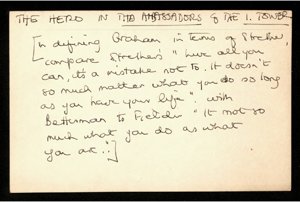 THE HERO IN THE AMBASSADORS & THE I. TOWER
[In defining Graham in terms of Strether,
compare Strether's "Live all you
can, it's a mistake not to. It doesn't
so much matter what you do so long
as you have your life". with
Betterman to Fielder "It not so
much what you do as what
you are."]